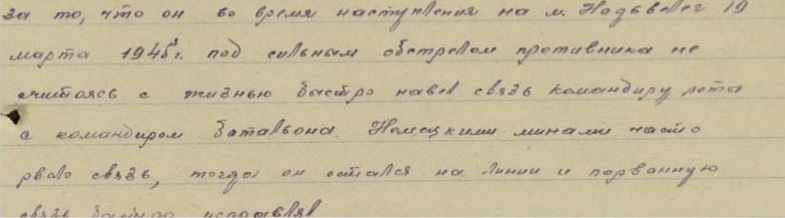 за то, что он во время наступления на м. Надьвелег 19
марта 1945 г. под сильным обстрелом противника не
считаясь с жизнью быстро навел связь командиру роты
с командиром батальона. Немецкими минами часто
рвало связь, тогда он остался на линии и порванную
связь быстро исправлял